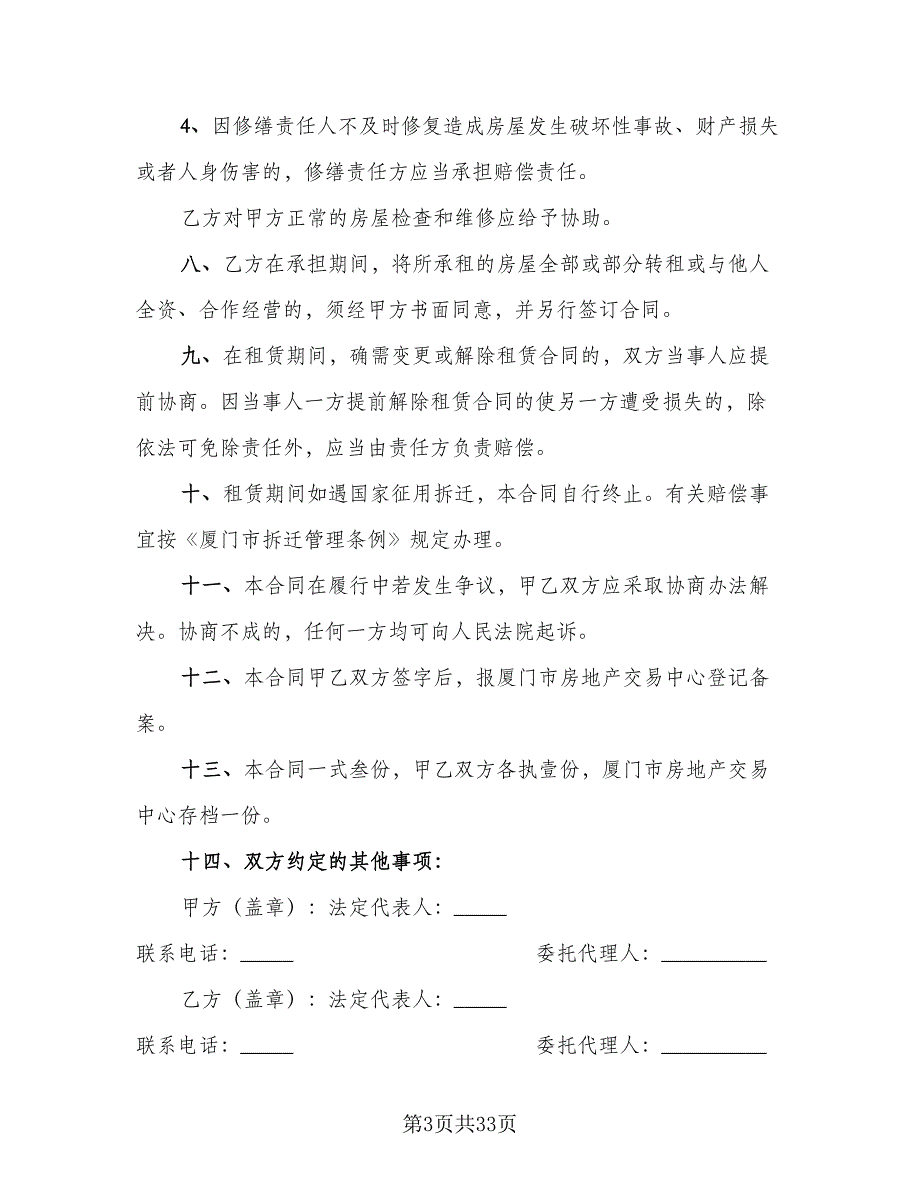 4、因修缮责任人不及时修复造成房屋发生破坏性事故、财产损失
或者人身伤害的，修缮责任方应当承担赔偿责任。
乙方对甲方正常的房屋检查和维修应给予协助。
八、乙方在承担期间，将所承租的房屋全部或部分转租或与他人
全资、合作经营的，须经甲方书面同意，并另行签订合同。
九、在租赁期间，确需变更或解除租赁合同的，双方当事人应提
前协商。因当事人一方提前解除租赁合同的使另一方遭受损失的，除
依法可免除责任外，应当由责任方负责赔偿。
十、租赁期间如遇国家征用拆迁，本合同自行终止。有关赔偿事
宜按《厦门市拆迁管理条例》规定办理。
十一、本合同在履行中若发生争议，甲乙双方应采取协商办法解
决。协商不成的，任何一方均可向人民法院起诉。
十二、本合同甲乙双方签字后，报厦门市房地产交易中心登记备
案。
十三、本合同一式叁份，甲乙双方各执壹份，厦门市房地产交易
中心存档一份。
十四、双方约定的其他事项：
甲方（盖章）：法定代表人：_____
联系电话：_____ 委托代理人：__________
乙方（盖章）：法定代表人：_____
联系电话：_____ 委托代理人：__________
第3页共33页